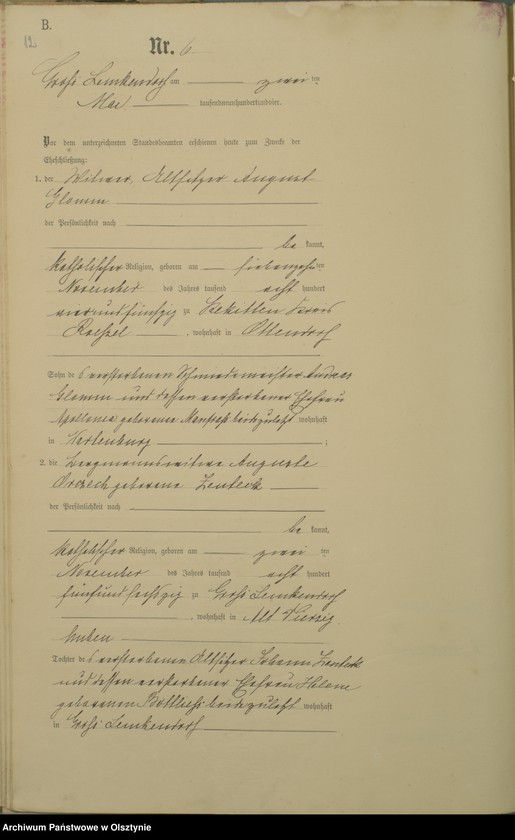 B.
12
Nr. 6
Groß Lemkendorf am zwei ten
Mai tausendneunhundertundvier.
Vor dem unterzeichneten Standesbeamten erschienen heute zum Zwecke der
Eheschließung:
1. der Witwer, Altsitzer August
Glomm
der Persönlichkeit nach
be kannt,
katholischer Religion, geboren am siebenzehn ten
November des Jahres tausend acht hundert
vierundfünfzig zu Bekitten Kreis
Roessel, wohnhaft in Ottendorf
Sohn des verstorbenen Schmiedemeister Andreas
Glomm und dessen verstorbener Ehefrau
Apollonia geborene zuletzt wohnhaft
in Wartenburg;
2. die Auguste
geborene
der Persönlichkeit nach
be kannt,
katholischer Religion, geboren am zwei ten
November des Jahres tausend acht hundert
fünfundsechzig zu Groß Lemkendorf
, wohnhaft in Alt Vierzig
huben
Tochter des verstorbenen Altsitzer Johann
und dessen verstorbener Ehefrau Helene
geborenen zuletzt wohnhaft
in Groß Lemkendorf
Archiwum Państwowe w Olsztynie